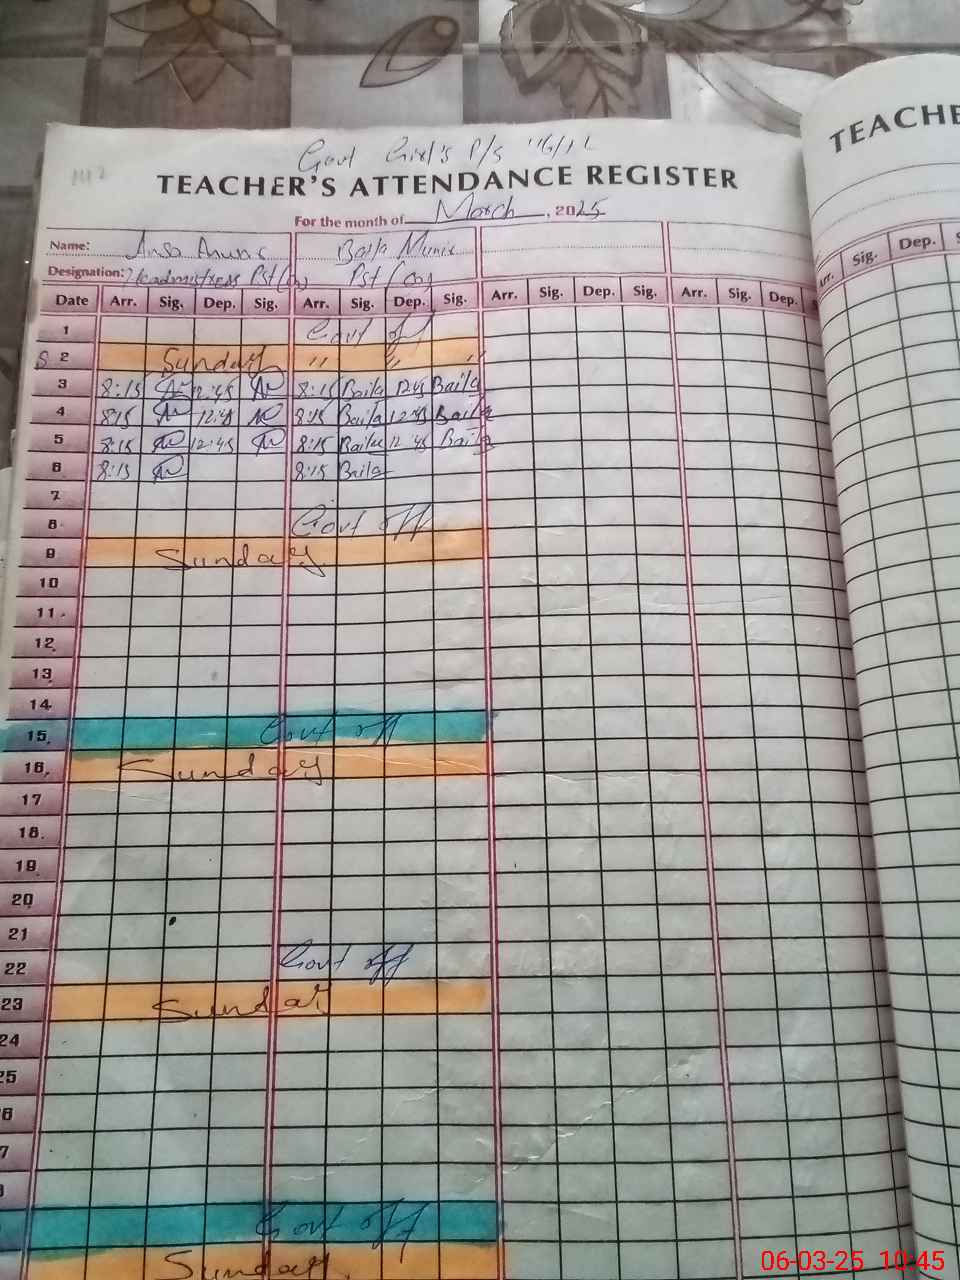 Govt Girl's P/S
TEACHER'S ATTENDANCE REGISTER
For the month of March, 2025
Name: Baila Munir
Designation: Headmistress Pst Pst
Date Arr. Sig. Dep. Sig. Arr. Sig. Dep. Sig. Arr. Sig. Dep. Sig. Arr. Sig. Dep.
1 Govt off
S 2 Sunday " " "
3 8:15 12:45 8:15 Baila 12:45 Baila
4 8:15 12:45 8:15 Baila 12:45 Baila
5 8:15 12:45 8:15 Baila 12:45 Baila
6 8:15 8:15 Baila
7
8 Govt off
9 Sunday
10
11
12
13
14
15 Govt off
16 Sunday
17
18
19
20
21
22 Govt off
23 Sunday
24
25
6
7
Govt off
Sunday
TEACHE
Arr. Sig. Dep. S
06-03-25 10:45